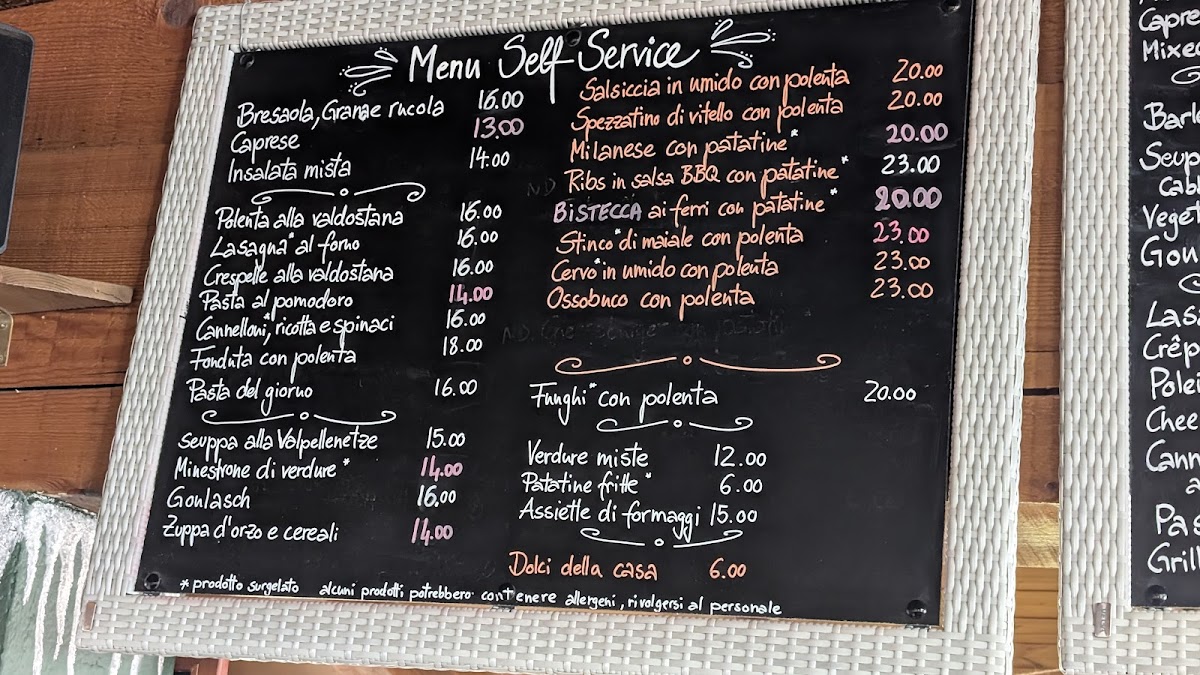 Menu Self Service
Bresaola, Grana e rucola 16.00
Caprese 13.00
Insalata mista 14.00
Polenta alla valdostana 16.00
Lasagna* al forno 16.00
Crespelle alla valdostana 16.00
Pasta al pomodoro 14.00
Cannelloni*, ricotta e spinaci 16.00
Fonduta con polenta 18.00
Pasta del giorno 16.00
Seuppa alla Valpellenetze 15.00
Minestrone di verdure* 14.00
Goulasch 16.00
Zuppa d'orzo e cereali 14.00
Salsiccia in umido con polenta 20.00
Spezzatino di vitello con polenta 20.00
Milanese con patatine* 20.00
Ribs in salsa BBQ con patatine* 23.00
BISTECCA ai ferri con patatine* 20.00
Stinco* di maiale con polenta 23.00
Cervo* in umido con polenta 23.00
Ossobuco con polenta 23.00
Funghi* con polenta 20.00
Verdure miste 12.00
Patatine fritte* 6.00
Assiette di formaggi 15.00
Dolci della casa 6.00
* prodotto surgelato alcuni prodotti potrebbero contenere allergeni, rivolgersi al personale
Mixed
Seup
Veget
Crêp
Chee
Cann
Pas
Grill